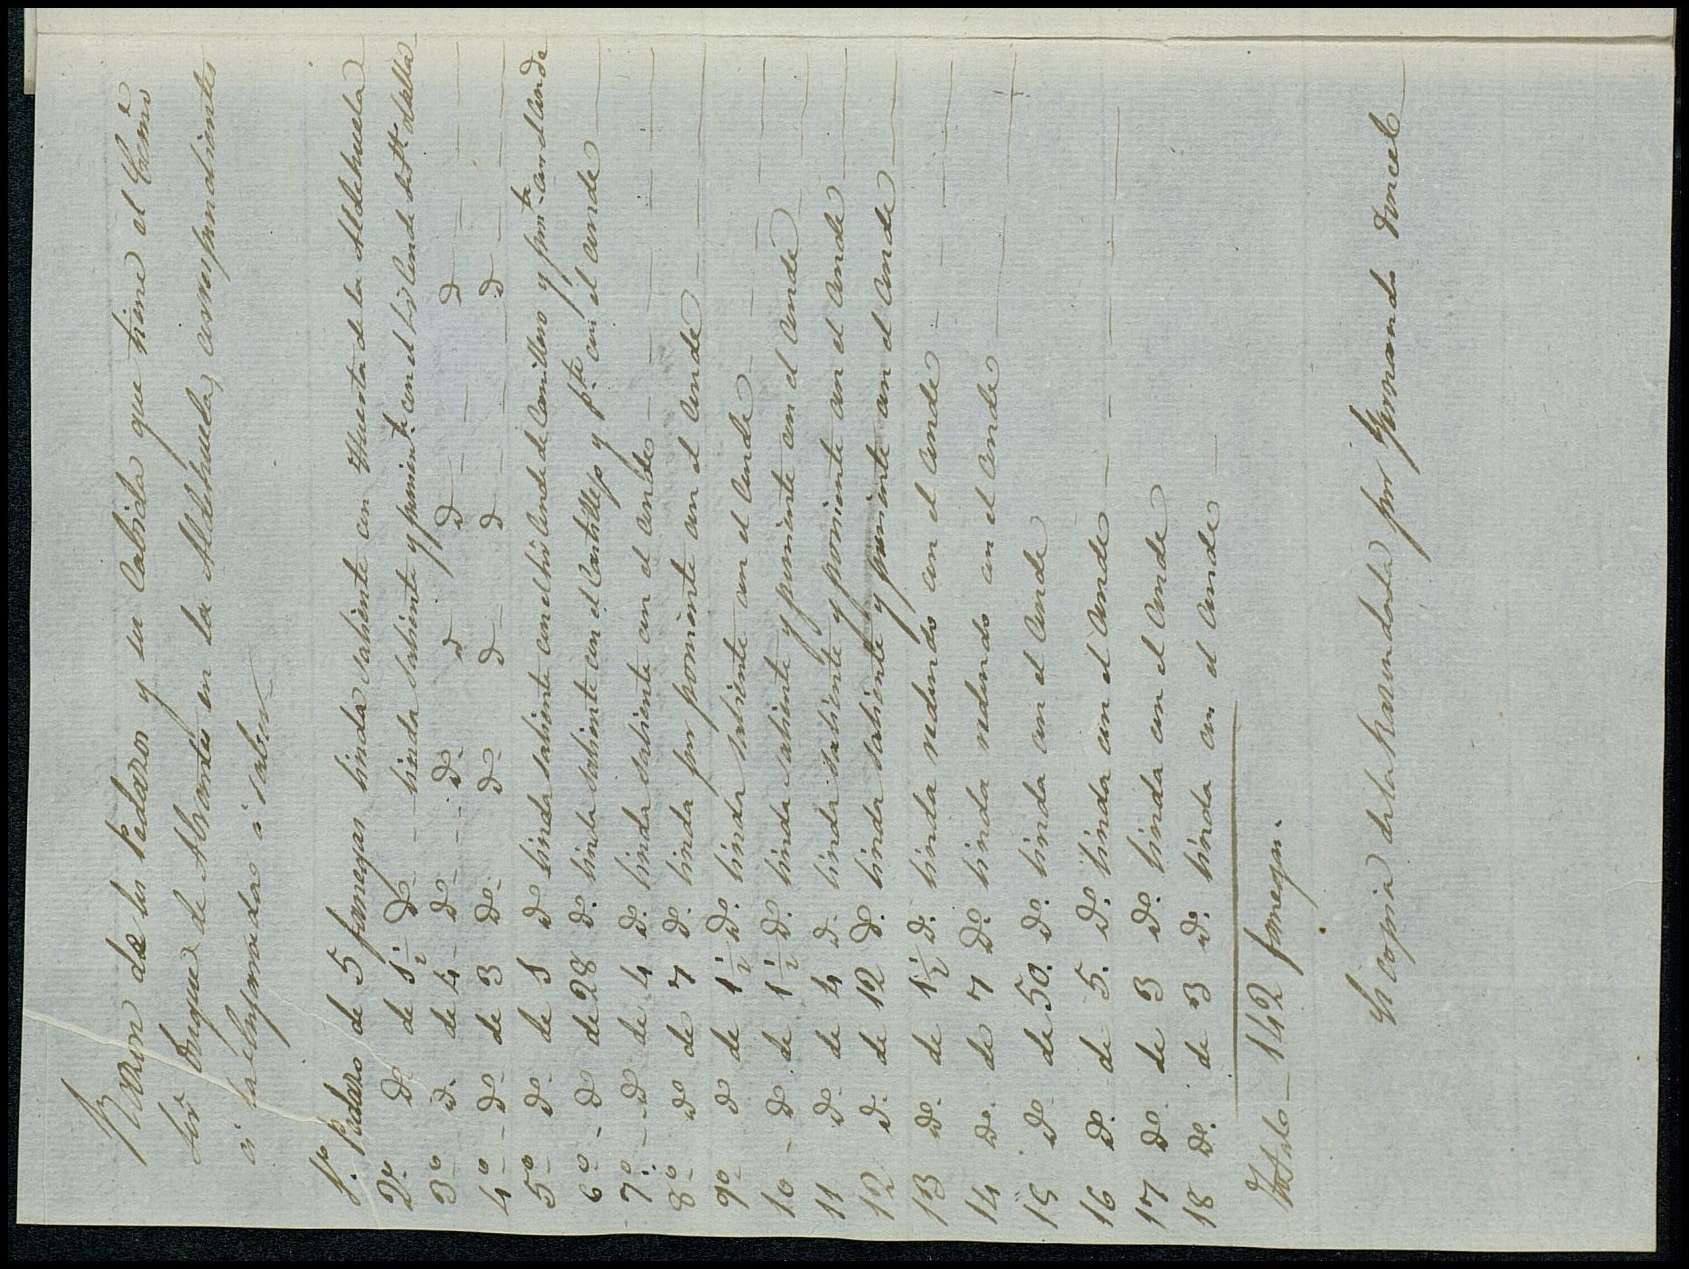 Razon de los Pedazos y su Cabida que tiene el Excmõ
Sõr Duque de Abrantes en la Aldehuela, correspondientes
a la Enfermeda a saber
1º. Pedazo de 5 fanegas linda saliente con Huerta de la Aldehuela
2º Dº de 1 1/2 Dº - linda saliente y poniente con el Sõr Conde
3º Dº. de 4 - Dº - Dº - Dº Dº Dº
4º - Dº - de 3 Dº - Dº - Dº Dº Dº
5º Dº - de 1 Dº linda saliente con el Sõr Conde de Canillero y ponte con el Conde
6º - Dº de 28 Dº. linda saliente con el Castillejo y pte con el Conde
7º - Dº de 4 Dº. linda saliente con el Conde
8º - Dº de 7 Dº. linda por poniente con el Conde
9º - Dº de 1 1/2 Dº. linda saliente con el Conde
10 - Dº de 1 1/2 Dº. linda saliente y poniente con el Conde
11 Dº. de 4 Dº. linda saliente y poniente con el Conde
12 Dº. de 12 Dº. linda saliente y poniente con el Conde
13 Dº. de 1 1/2 Dº. linda redondo con el Conde
14 Dº. de 7 Dº. linda redondo con el Conde
15 Dº. de 50. Dº. linda con el Conde
16 Dº. de 5. Dº. linda con el Conde
17 Dº. de 3 Dº. linda con el Conde
18 Dº. de 3 Dº. linda con el Conde
Total - 142 fanegas.
Es copia de la Razon dada por Fernando Doncel